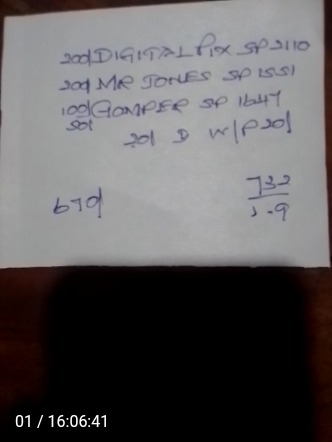 200/ DIGITAL PIX SP 2110
200/ MR JONES SP 1551
100/ GOMPER SP 1647
50/
20/ D W/P 20/
670/
732
1-9
01 / 16:06:41